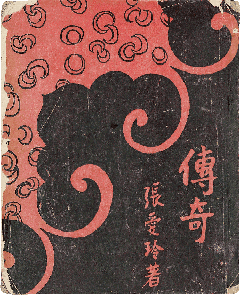 傳奇
張愛玲著